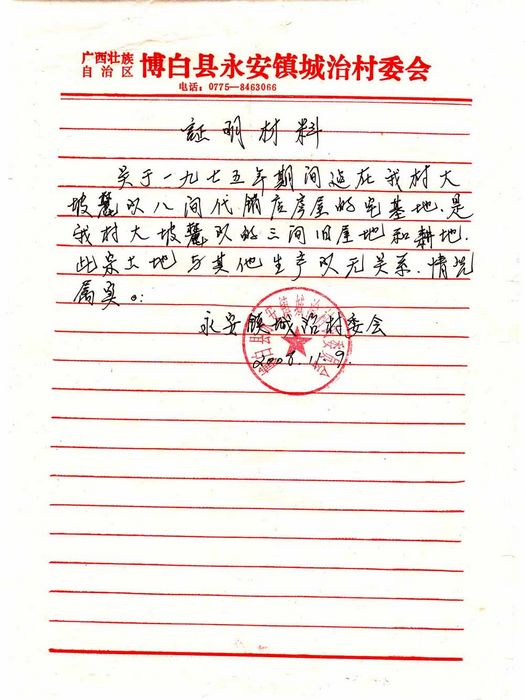 广西壮族
自治区
博白县永安镇城治村委会
电话：0775—8463066
証明材料
关于一九七五年期间造在我村大
坡麓队八间代销店房屋的宅基地.是
我村大坡麓队的三间旧屋地和耕地.
此宗土地与其他生产队无关系.情况
属实。:
永安镇城治村委会
2008.11.9.
博白县永安镇城治村民委员会